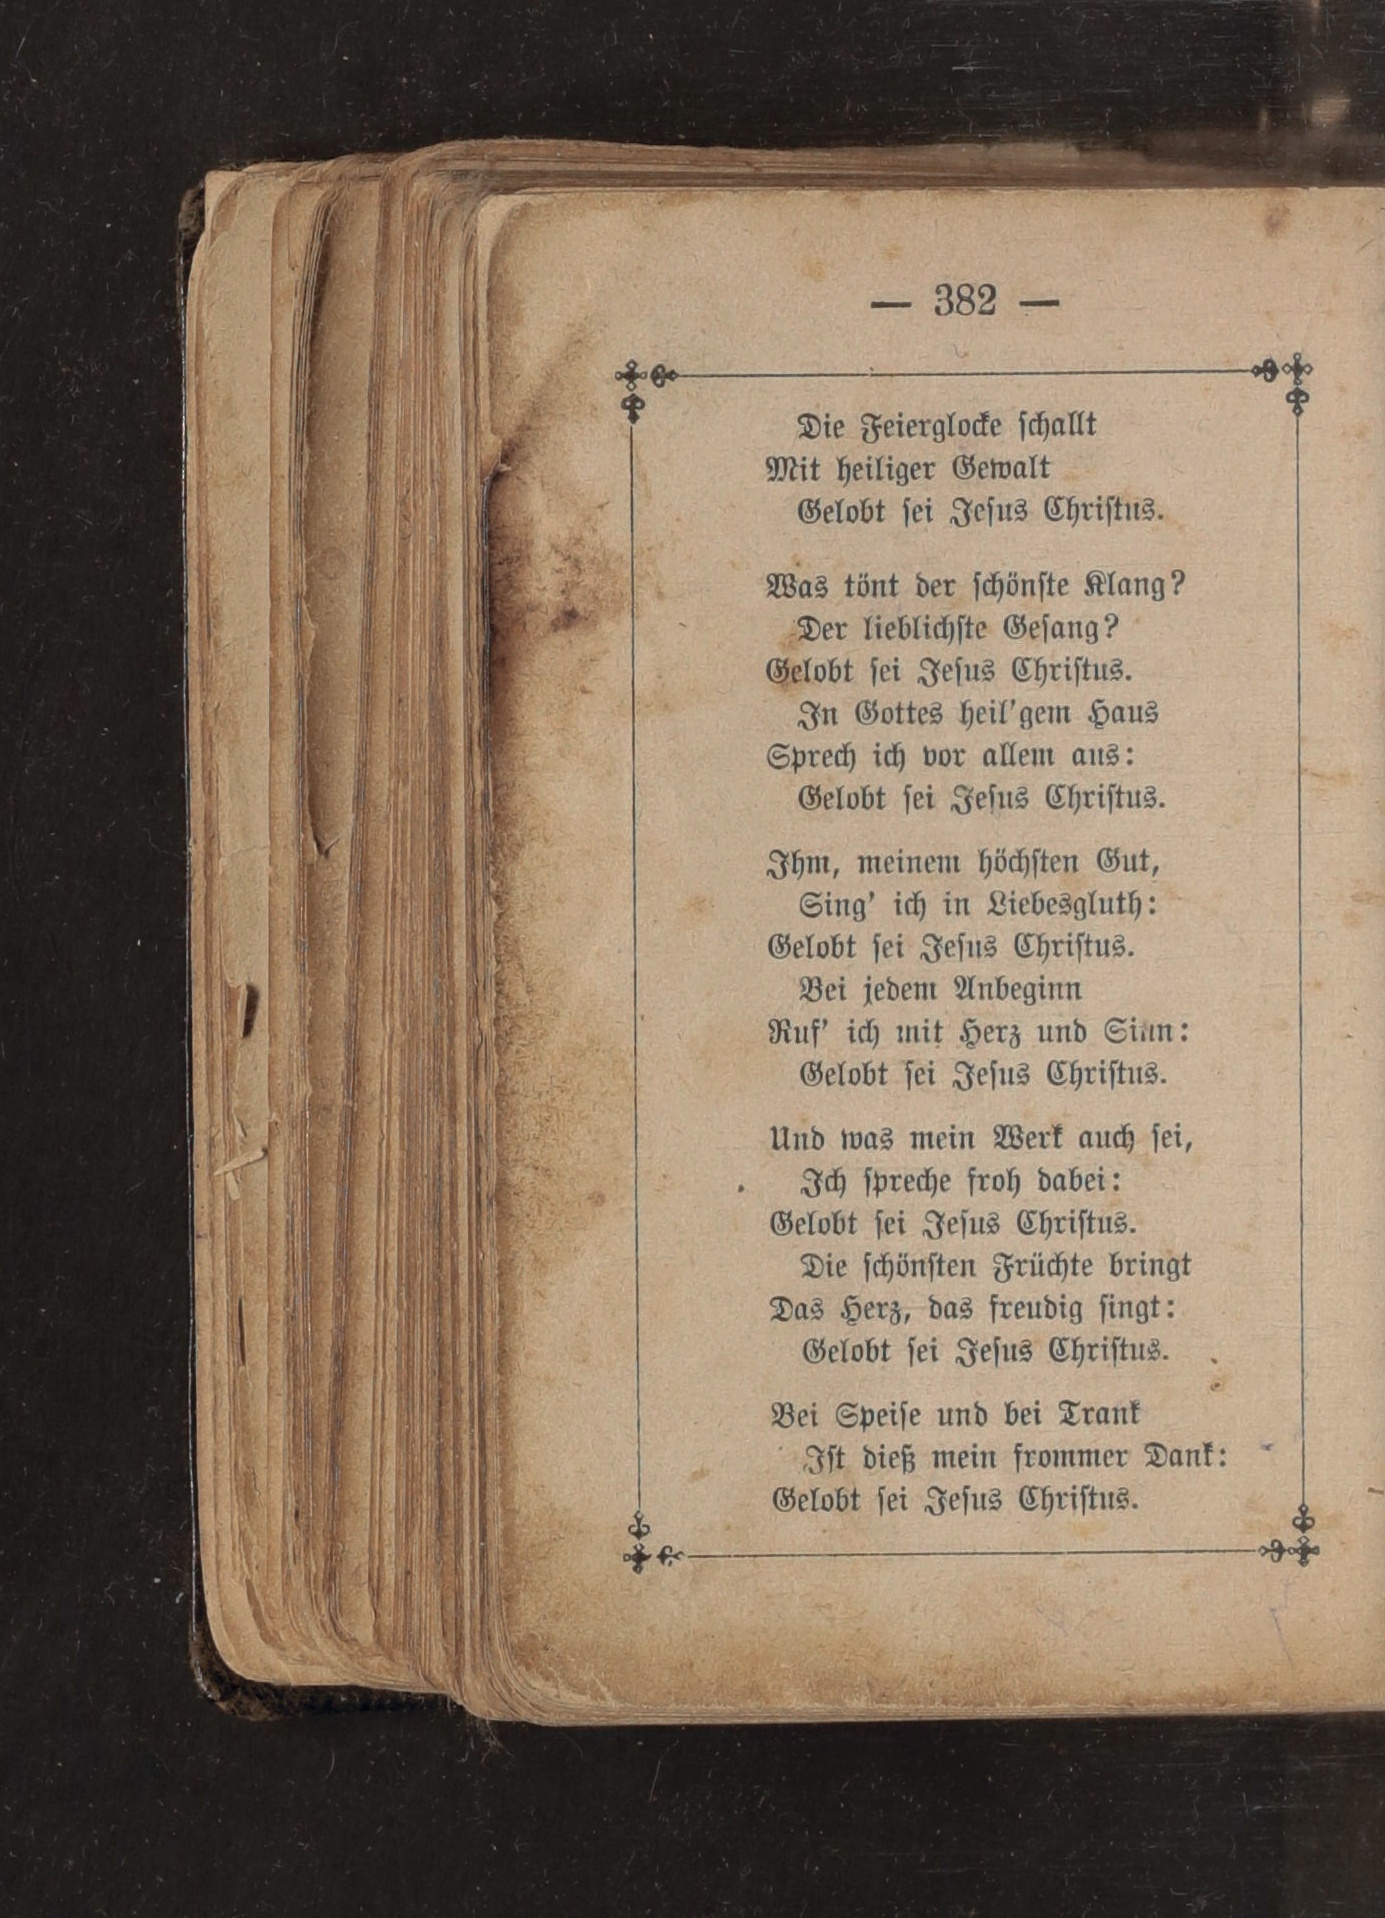 — 382 —
Die Feierglocke schallt
Mit heiliger Gewalt
Gelobt sei Jesus Christus.
Was tönt der schönste Klang?
Der lieblichste Gesang?
Gelobt sei Jesus Christus.
In Gottes heil'gem Haus
Sprech ich vor allem aus:
Gelobt sei Jesus Christus.
Ihm, meinem höchsten Gut,
Sing' ich in Liebesgluth:
Gelobt sei Jesus Christus.
Bei jedem Anbeginn
Ruf' ich mit Herz und Sinn:
Gelobt sei Jesus Christus.
Und was mein Werk auch sei,
Ich spreche froh dabei:
Gelobt sei Jesus Christus.
Die schönsten Früchte bringt
Das Herz, das freudig singt:
Gelobt sei Jesus Christus.
Bei Speise und bei Trank
Ist dieß mein frommer Dank:
Gelobt sei Jesus Christus.